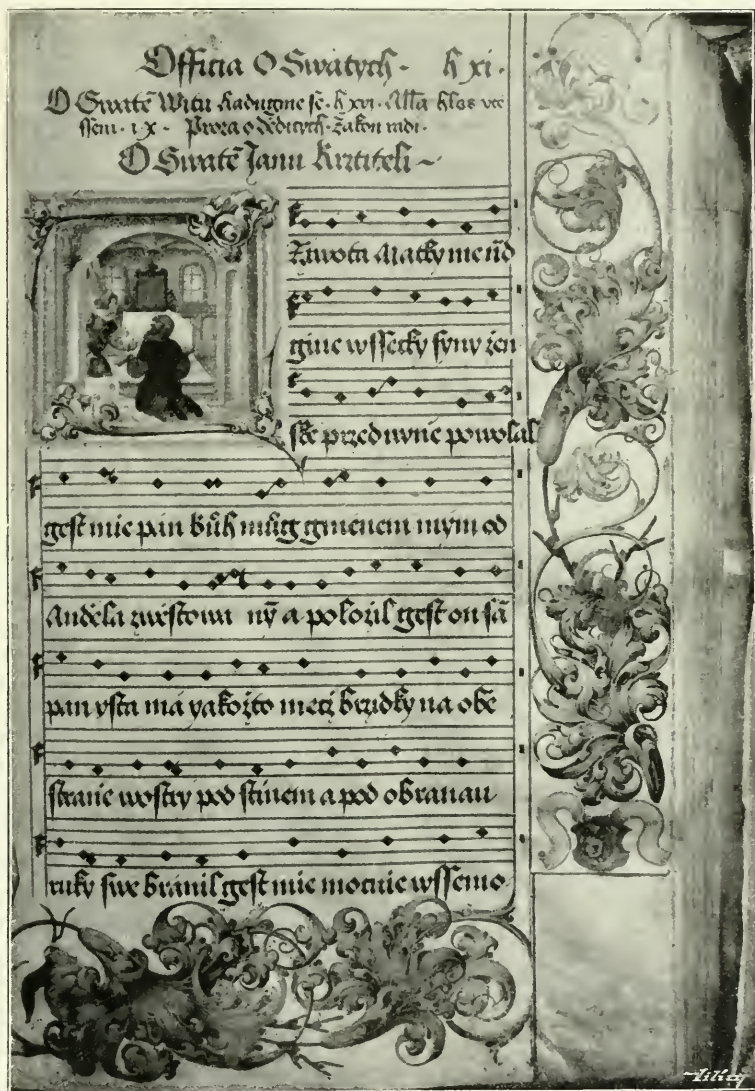 Officia O Swatych · h xi ·
O Swatē Witu · h xvi · Alla hlas
· i x · Proza o dědicych · Zakon
O Swatē Janu Krztiteli ~
Ziwota Matky me
gine wssecky syny žen
ske przed nynie powolal
gest mie pan bůh můg gmenem mym od
Anděla zwěstowa nẏ a položil gest on sā
pan vsta má yakožto mecz brzdky na obě
stranie wostry pod stinem a pod obranau
ruky swe branil gest mie mocnie wssemo